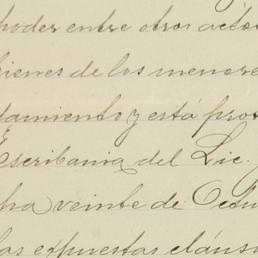 poder entre otros actos
bienes de los menore
damiento y está pro
Escribania del Lic.
cha veinte de Octu
las expuestas cláusu